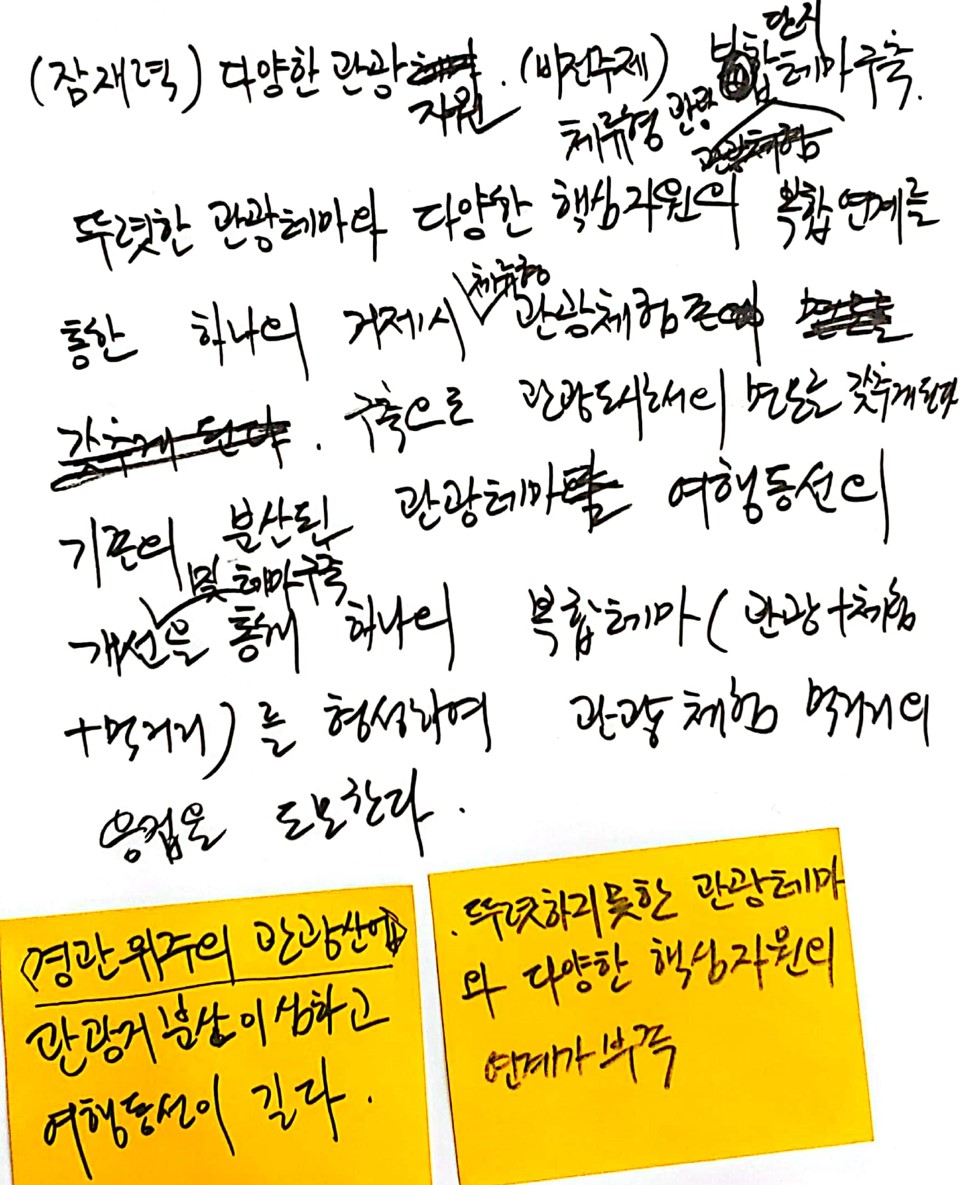 (잠재력) 다양한 관광자원. (비전주제) 복합단지테마구축.
체류형 관광
뚜렷한 관광테마와 다양한 핵심자원의 복합연계를
통한 하나의 거제시 체류형 관광체험존의
구축으로 관광도시로서의 면모를 갖추게된다
기존의 분산된 관광테마를 여행동선의
개선 및 테마구축을 통해 하나의 복합테마(관광+체험
+먹거리)를 형성하여 관광 체험 먹거리의
융합을 도모한다.
<경관위주의 관광산업>
관광지 분산이 심하고
여행동선이 길다.
. 뚜렷하지못한 관광테마
와 다양한 핵심자원의
연계가 부족